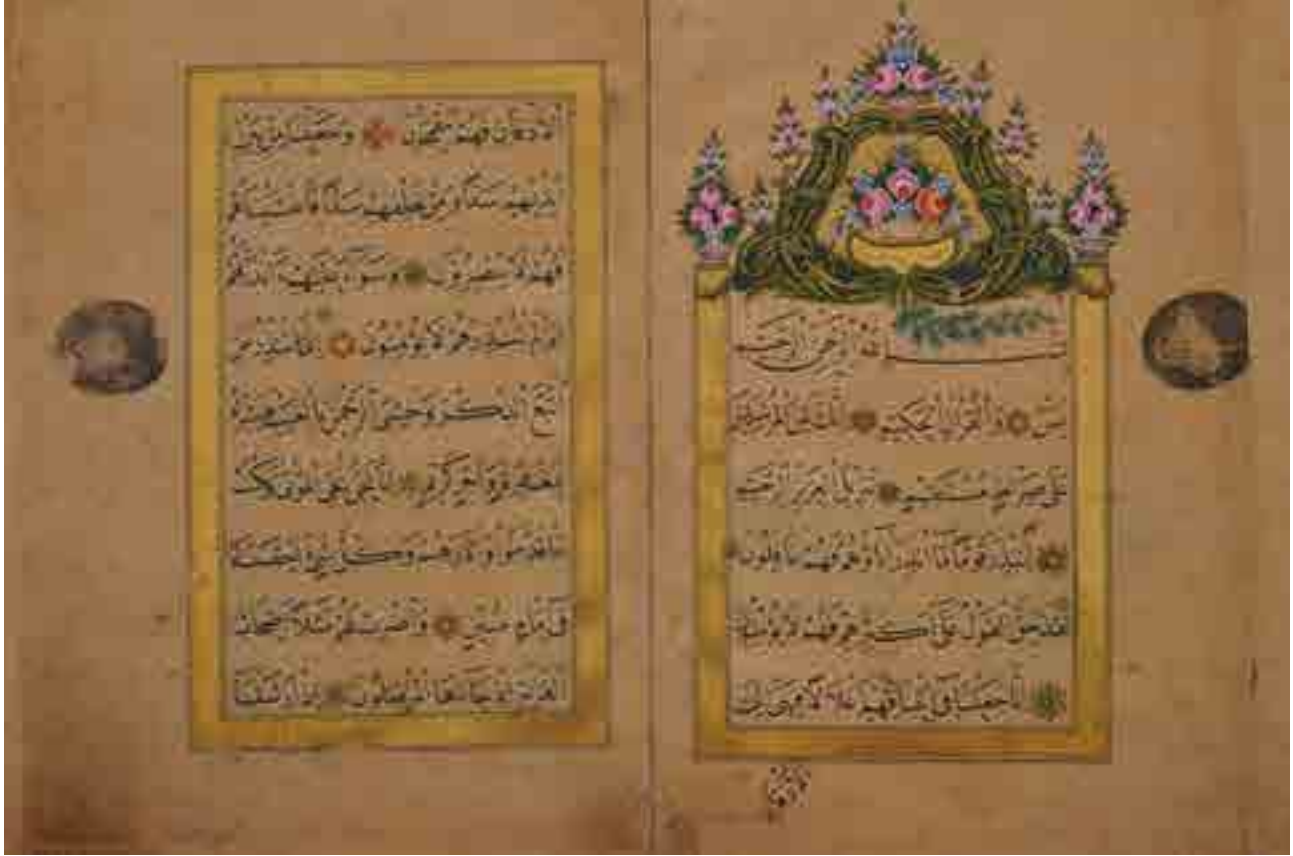 بسم الله الرحمن الرحيم
يس والقرآن الحكيم إنك لمن المرسلين
على صراط مستقيم تنزيل العزيز الرحيم
لتنذر قوما ما أنذر آباؤهم فهم غافلون
لقد حق القول على أكثرهم فهم لا يؤمنون
إنا جعلنا في أعناقهم أغلالا فهي إلى
الأذقان فهم مقمحون وجعلنا من بين
أيديهم سدا ومن خلفهم سدا فأغشيناهم
فهم لا يبصرون وسواء عليهم أأنذرتهم
أم لم تنذرهم لا يؤمنون إنما تنذر من
اتبع الذكر وخشي الرحمن بالغيب فبشره
بمغفرة وأجر كريم إنا نحن نحي الموتى ونكتب
ما قدموا وآثارهم وكل شيء أحصيناه
في إمام مبين واضرب لهم مثلا أصحاب
القرية إذ جاءها المرسلون إذ أرسلنا